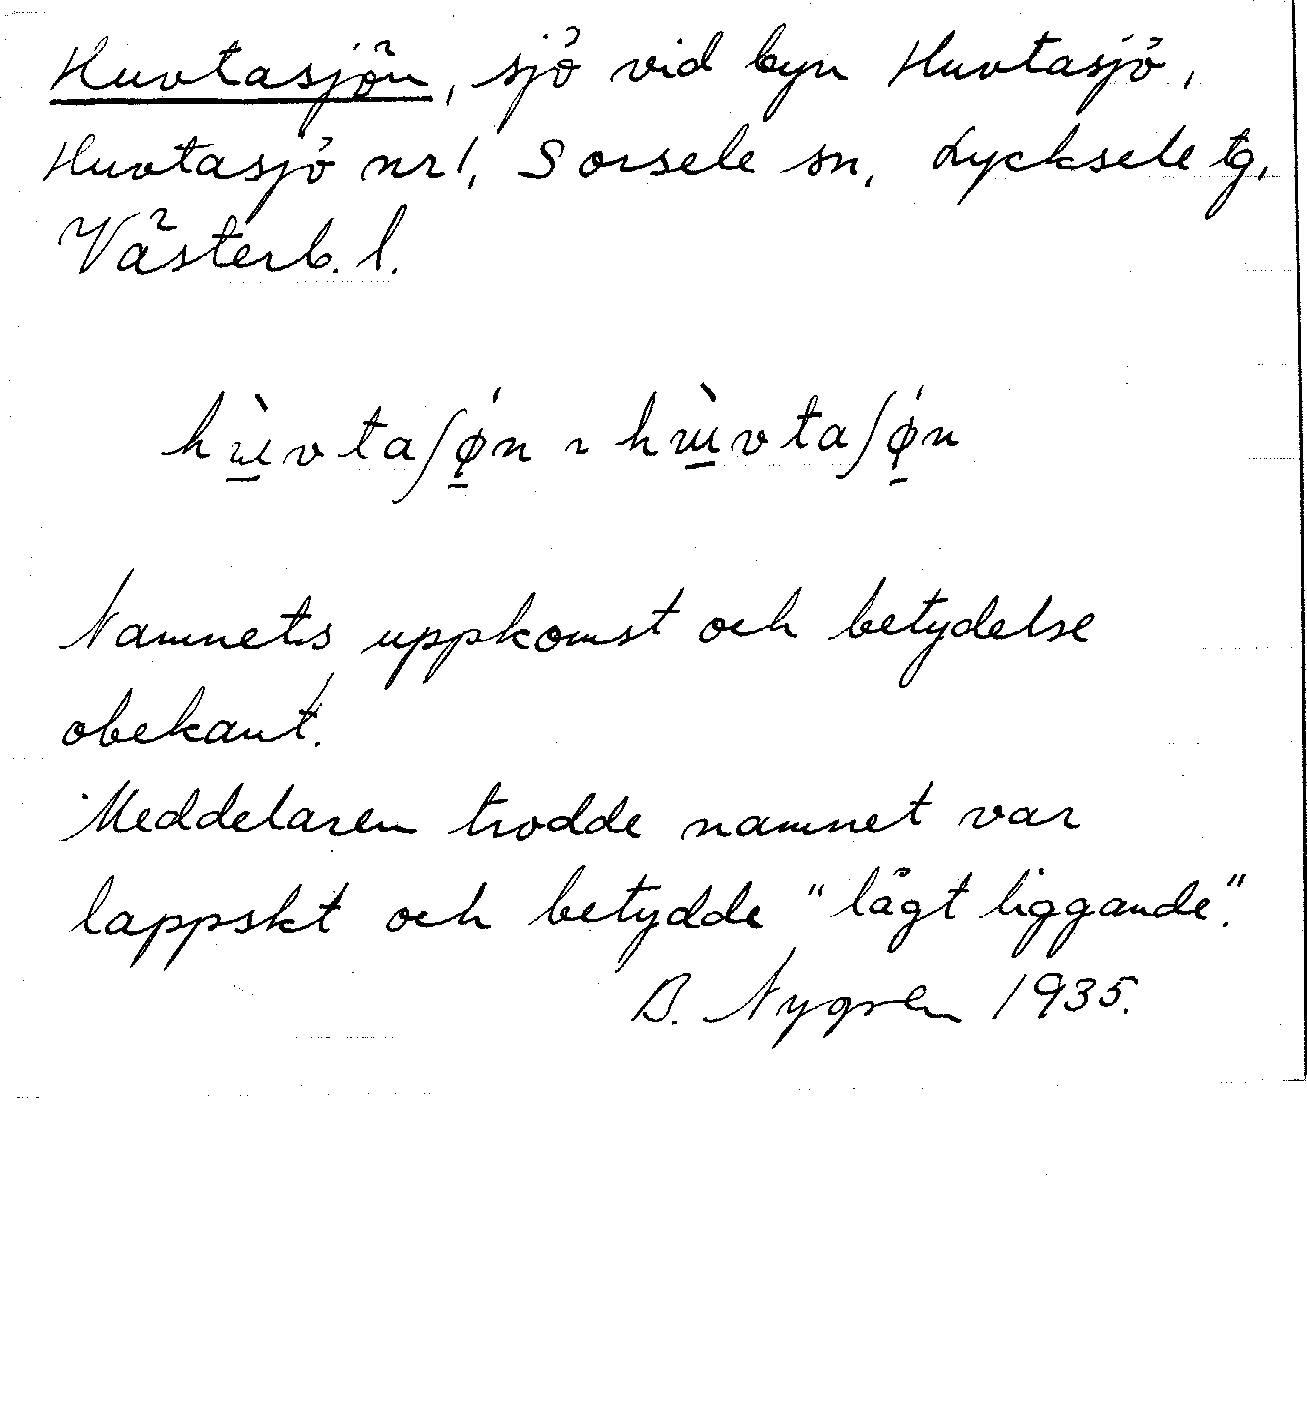 Huvtasjön, sjö vid byn Huvtasjö,
Huvtasjö nr 1, Sorsele sn, Lycksele tg,
Västerb. l.
hɯ̱̀vtaʃǿ̱n ~ hɯ̱̀vtaʃǿ̱n
Namnets uppkomst och betydelse
obekant.
Meddelaren trodde namnet var
lappskt och betydde "lågt liggande".
B. Nygren 1935.